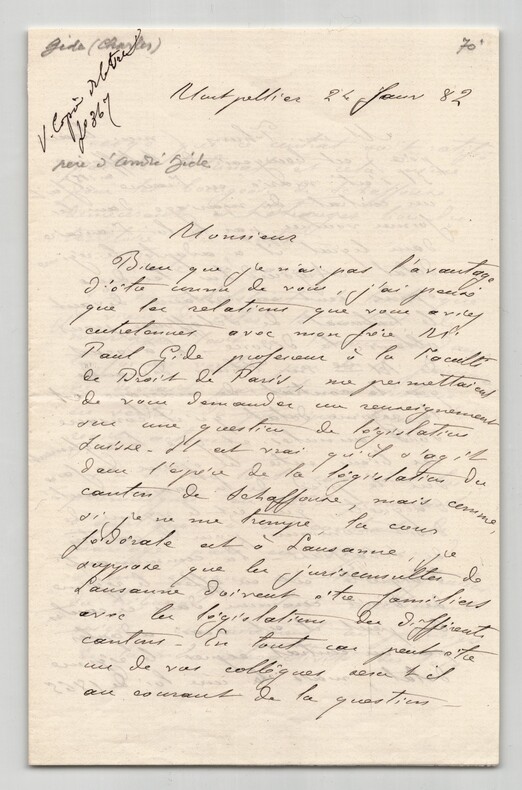 Gide (Charles)
70
V. Copie de lettres
fo 867
père d'André Gide
Montpellier 24 Janv 82
Monsieur
Bien que je n'ai pas l'avantage
d'être connu de vous, j'ai pensé
que les relations que vous aviez
entretenues avec mon frère Mr
Paul Gide professeur à la Faculté
de Droit de Paris, me permettaient
de vous demander un renseignement
sur une question de législation
suisse. Il est vrai qu'il s'agit
dans l'espèce de la législation du
canton de Schaffouse, mais comme,
si je ne me trompe, la cour
fédérale est à Lausanne, je
suppose que les jurisconsultes de
Lausanne doivent être familiers
avec les législations des différents
cantons - En tout cas peut-être
un de vos collègues sera t-il
au courant de la question -